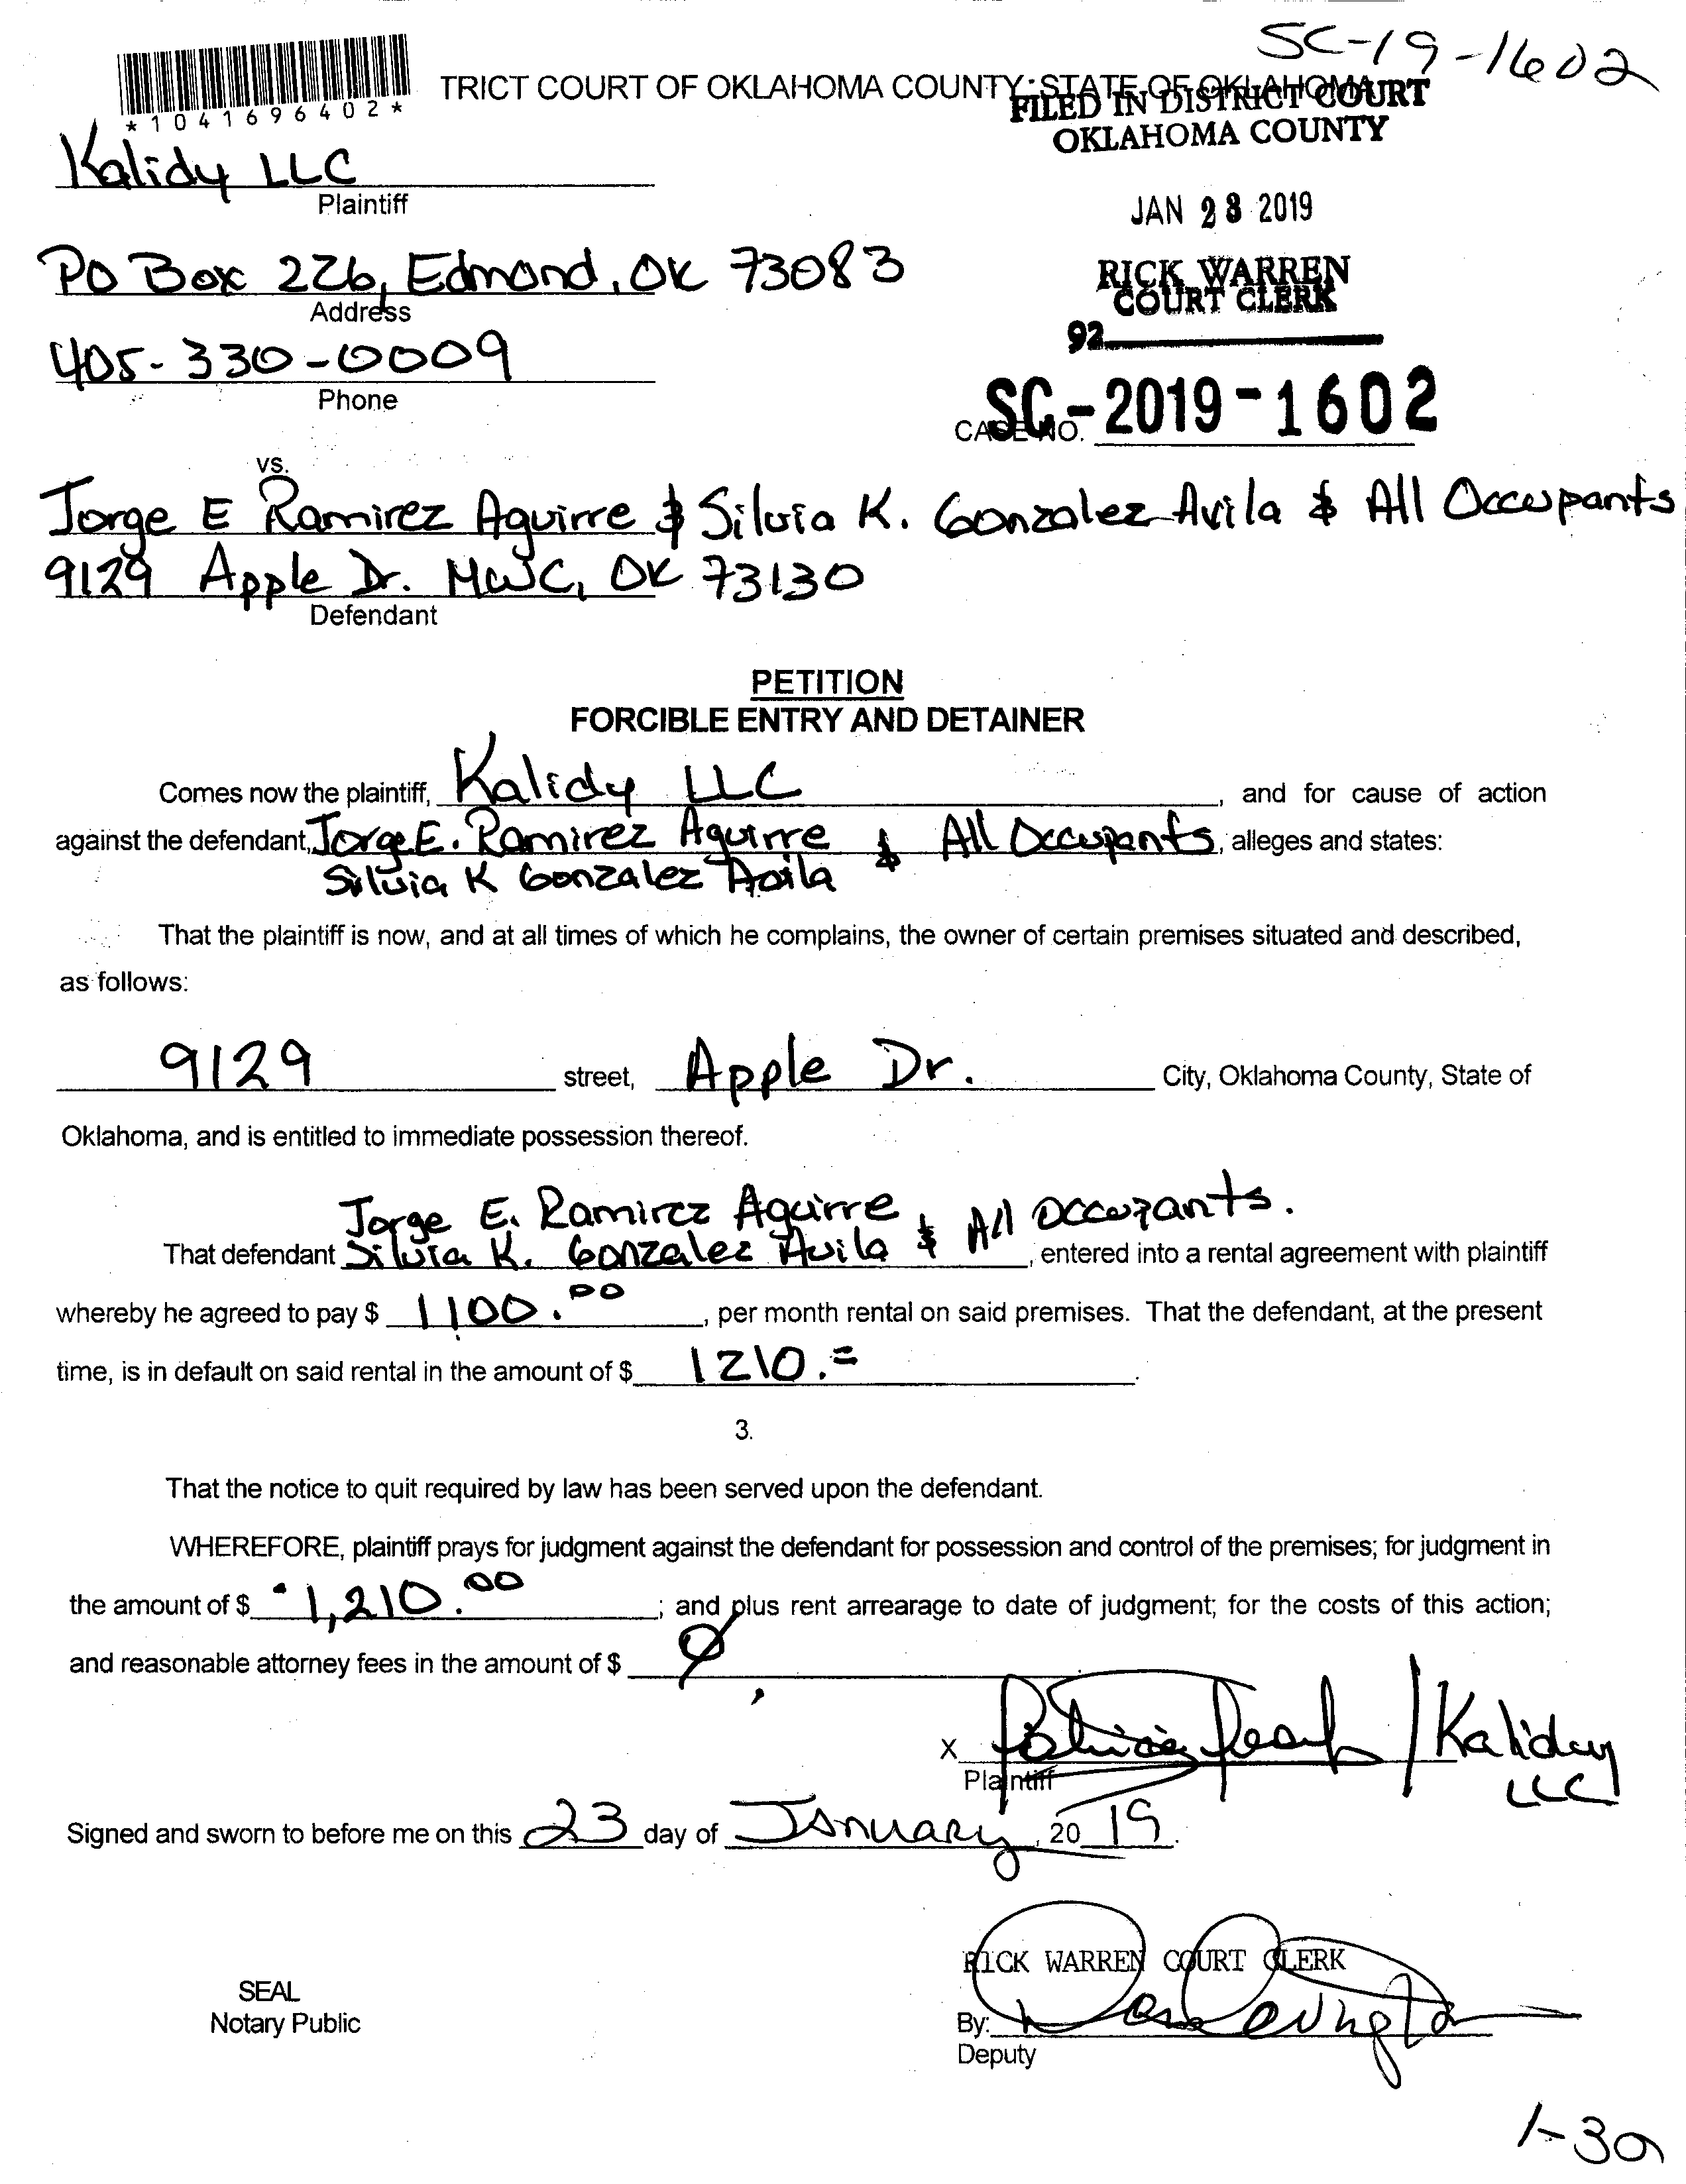 SC-19-1602
*1041696402*
TRICT COURT OF OKLAHOMA COUNTY, STATE OF OKLAHOMA
FILED IN DISTRICT COURT
OKLAHOMA COUNTY
Kalidy LLC
Plaintiff
JAN 23 2019
PO Box 226, Edmond, OK 73083
Address
RICK WARREN
COURT CLERK
405-330-0009
92
Phone
CASE NO. SC-2019-1602
vs.
Jorge E Ramirez Aguirre & Silvia K. Gonzalez Avila & All Occupants
9129 Apple Dr. MWC, OK 73130
Defendant
PETITION
FORCIBLE ENTRY AND DETAINER
Comes now the plaintiff, Kalidy LLC, and for cause of action
against the defendant, Jorge E. Ramirez Aguirre & All Occupants, alleges and states:
Silvia K Gonzalez Avila
That the plaintiff is now, and at all times of which he complains, the owner of certain premises situated and described,
as follows:
9129 street, Apple Dr. City, Oklahoma County, State of
Oklahoma, and is entitled to immediate possession thereof.
Jorge E. Ramirez Aguirre & All Occupants.
That defendant Silvia K. Gonzalez Avila, entered into a rental agreement with plaintiff
whereby he agreed to pay $ 1100.00, per month rental on said premises. That the defendant, at the present
time, is in default on said rental in the amount of $ 1210.=
3.
That the notice to quit required by law has been served upon the defendant.
WHEREFORE, plaintiff prays for judgment against the defendant for possession and control of the premises; for judgment in
the amount of $ 1,210.00; and plus rent arrearage to date of judgment; for the costs of this action;
and reasonable attorney fees in the amount of $ Ø
X / Kalidy
Plaintiff LLC
Signed and sworn to before me on this 23 day of January, 2019.
RICK WARREN COURT CLERK
SEAL
Notary Public
By:
Deputy
1-30